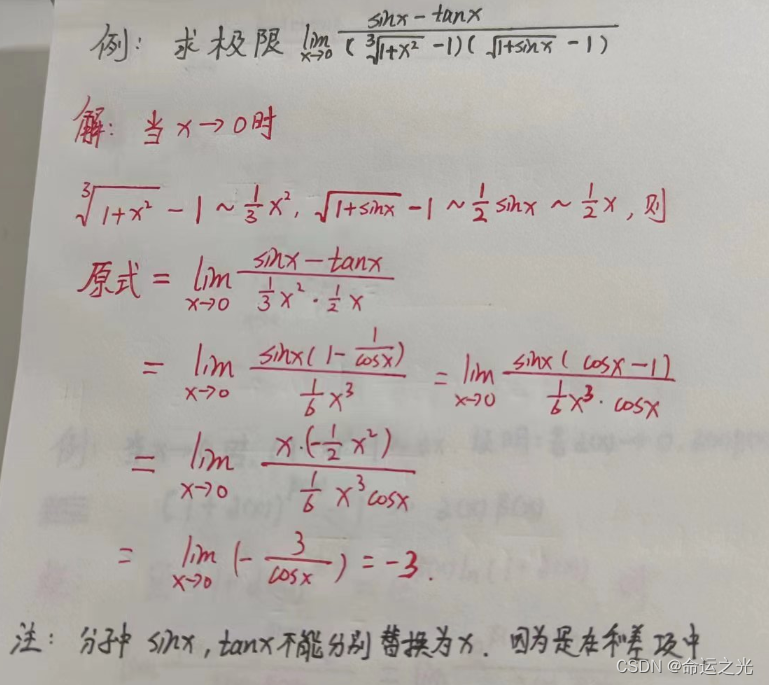 例: 求极限 lim x→0 (sinx - tanx) / ((∛(1+x²) - 1)(√(1+sinx) - 1))
解: 当 x→0时
∛(1+x²) - 1 ~ 1/3 x², √(1+sinx) - 1 ~ 1/2 sinx ~ 1/2 x, 则
原式 = lim x→0 (sinx - tanx) / (1/3 x² · 1/2 x)
= lim x→0 sinx(1 - 1/cosx) / (1/6 x³) = lim x→0 sinx(cosx - 1) / (1/6 x³ · cosx)
= lim x→0 x·(-1/2 x²) / (1/6 x³ cosx)
= lim x→0 (- 3/cosx) = -3.
注: 分子中 sinx, tanx不能分别替换为x. 因为是在和差项中
CSDN @命运之光